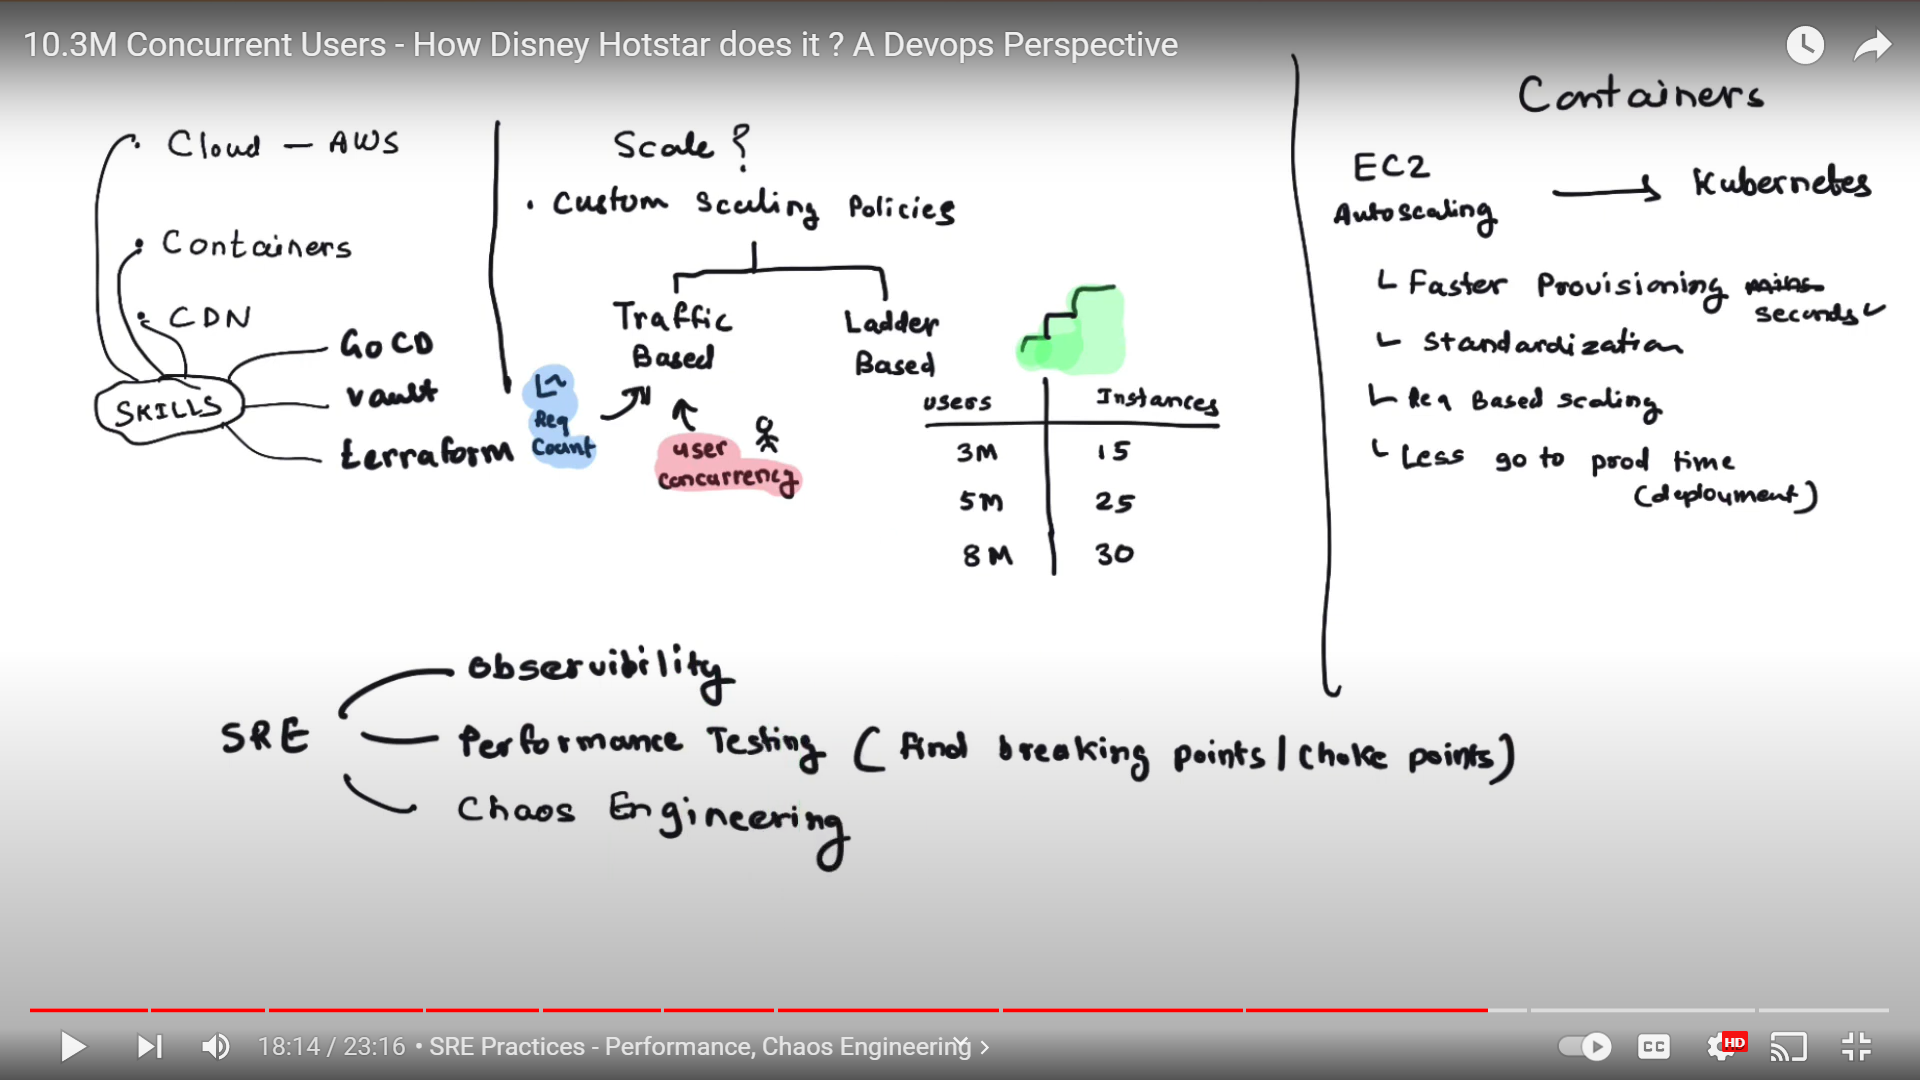 10.3M Concurrent Users - How Disney Hotstar does it ? A Devops Perspective
Cloud — AWS
Containers
CDN
GoCD
vault
terraform
SKILLS
Scale ?
• Custom Scaling Policies
Traffic
Based
Ladder
Based
Req
Count
user
concurrency
users Instances
3M 15
5M 25
8M 30
Containers
EC2
Autoscaling
Kubernetes
Faster Provisioning mins
seconds
Standardization
Req Based scaling
Less go to prod time
(deployment)
SRE
Observibility
Performance Testing ( find breaking points / choke points)
Chaos Engineering
18:14 / 23:16 • SRE Practices - Performance, Chaos Engineering
CC
HD